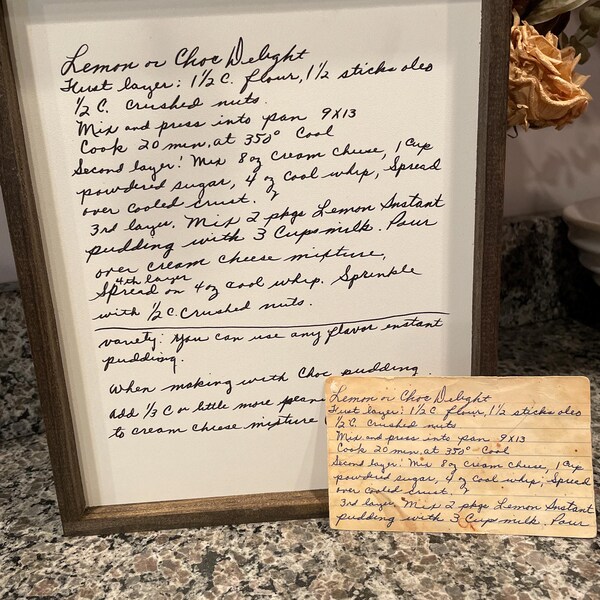 Lemon or Choc Delight
First layer: 1½ C. flour, 1½ sticks oleo
½ C. Crushed nuts.
Mix and press into pan 9X13
Cook 20 min, at 350° Cool
Second layer: Mix 8 oz cream cheese, 1 Cup
powdered sugar, 4 oz cool whip, Spread
over cooled crust.
3rd layer. Mix 2 pkgs Lemon Instant
pudding with 3 Cups milk. Pour
over cream cheese mixture,
4th layer
Spread on 4 oz cool whip. Sprinkle
with ½ C. Crushed nuts.
variety: You can use any flavor instant
pudding.
When making with Choc pudding
add ⅓ C or little more pean
to cream cheese mixture
Lemon or Choc Delight
First layer: 1½ C. flour, 1½ sticks oleo
½ C. Crushed nuts
Mix and press into pan 9X13
Cook 20 min, at 350° Cool
Second layer: Mix 8 oz cream cheese, 1 Cup
powdered sugar, 4 oz cool whip, Spread
over cooled crust.
3rd layer Mix 2 pkgs Lemon Instant
pudding with 3 Cups milk, Pour